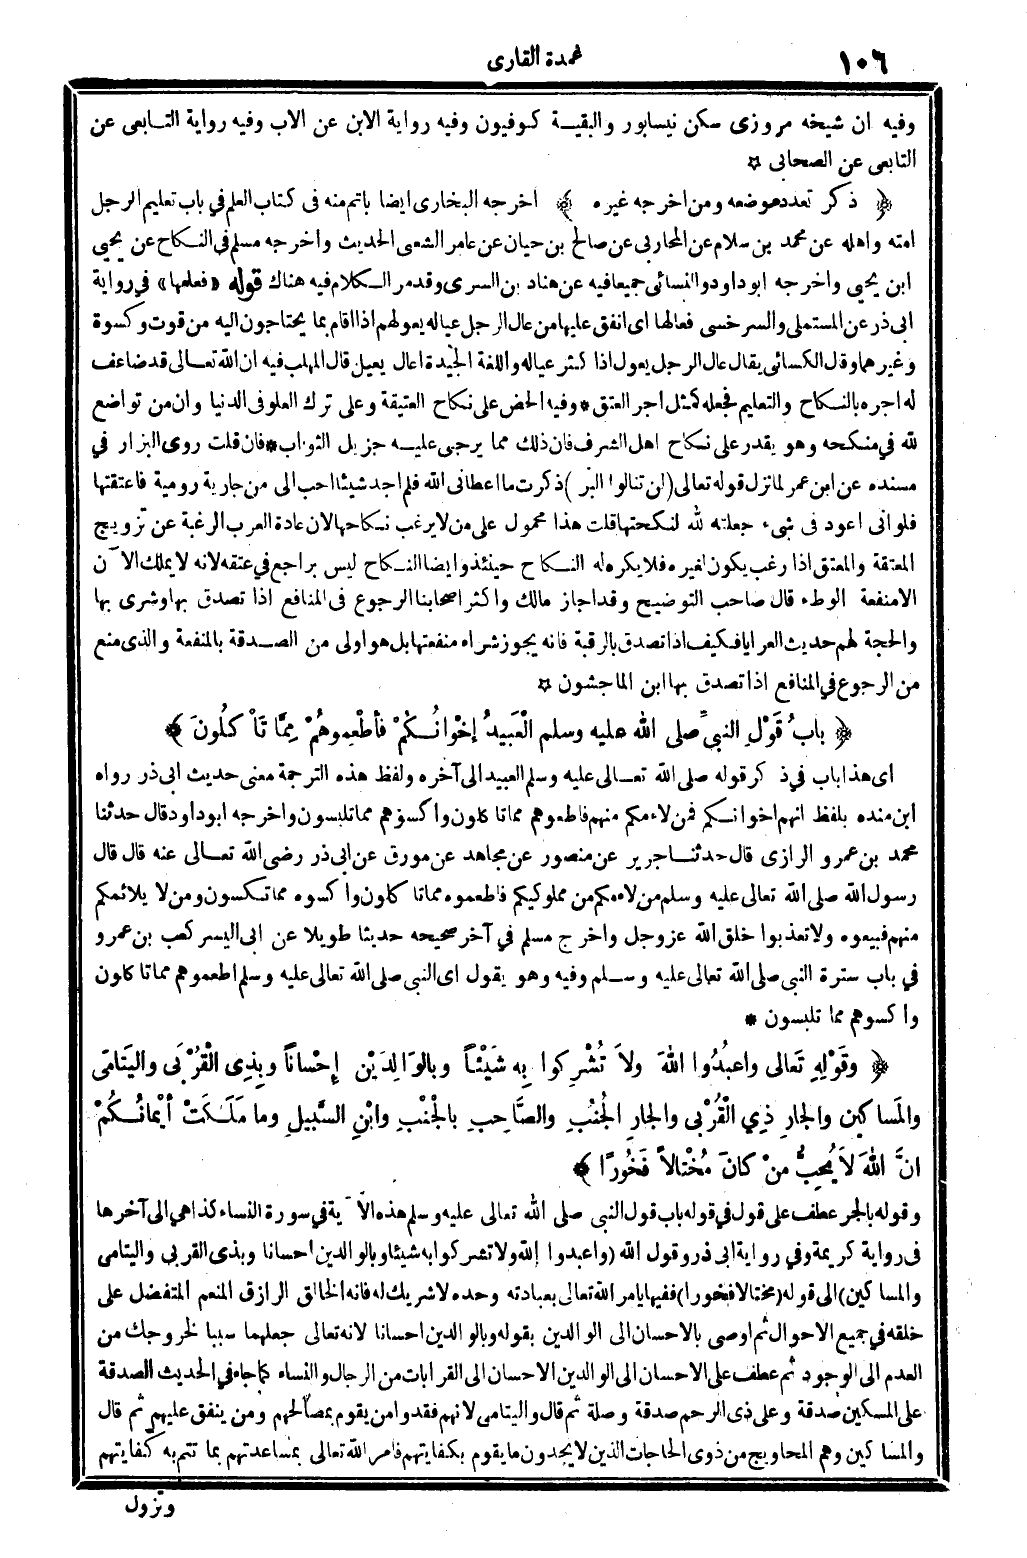 ١٠٦
عمدة القارى
وفيه ان شيخه مروزى سكن نيسابور والبقية كوفيون وفيه رواية الابن عن الاب وفيه رواية التابعى عن
التابعى عن الصحابى ✩
﴿ ذكر تعدد موضعه ومن اخرجه غيره ﴾ اخرجه البخارى ايضا باتم منه فى كتاب العلم في باب تعليم الرجل
امته واهله عن محمد بن سلام عن المحاربى عن صالح بن حيان عن عامر الشعبى الحديث واخرجه مسلم فى النكاح عن يحيى
ابن يحيى واخرجه ابو داود والنسائى جميعا فيه عن هناد بن السرى وقد مر الكلام فيه هناك قوله «فعلمها» في رواية
ابى ذر عن المستملى والسرخسى فعالها اى انفق عليها من عال الرجل عياله يعولهم اذا اقام بما يحتاجون اليه من قوت وكسوة
وغيرهما وقال الكسائى يقال عال الرجل يعول اذا كثر عياله واللغة الجيدة اعال يعيل قال المهلب فيه ان الله تعالى قد ضاعف
له اجره بالنكاح والتعليم فجعله كمثل اجر العتق * وفيه الحض على نكاح العتيقة وعلى ترك العلو فى الدنيا وان من تواضع
لله في منكحه وهو يقدر على نكاح اهل الشرف فان ذلك مما يرجى عليه جزيل الثواب * فان قلت روى البزار في
مسنده عن ابن عمر لما نزل قوله تعالى (لن تنالوا البر) ذكرت ما اعطانى الله فلم اجد شيئا احب الى من جارية رومية فاعتقتها
فلو انى اعود فى شىء جعلته لله لنكحتها قلت هذا محمول على من لا يرغب نكاحها لان عادة العرب الرغبة عن تزويج
المعتقة والمعتق اذا رغب يكون لغيره فلا يكره له النكاح حينئذ وايضا النكاح ليس براجع في عتقه لانه لا يملك الآن
الامنفعة الوطء قال صاحب التوضيح وقد اجاز مالك واكثر اصحابنا الرجوع فى المنافع اذا تصدق بها وشرى بها
والحجة لهم حديث العرايا فكيف اذا تصدق بالرقبة فانه يجوز شراء منفعتها بل هو اولى من الصدقة بالمنفعة والذى منع
من الرجوع في المنافع اذا تصدق بها ابن الماجشون ✩
﴿ بابُ قَوْلِ النبيِّ صلى الله عليه وسلم الْعَبيدُ إخْوَانُكُمْ فأطْعِموهُمْ مِمَّا تَأْكُلُونَ ﴾
اى هذا باب في ذكر قوله صلى الله تعالى عليه وسلم العبيد الى آخره ولفظ هذه الترجمة معنى حديث ابى ذر رواه
ابن منده بلفظ انهم اخوانكم فمن لاءمكم منهم فاطعموهم مما تاكلون واكسوهم مما تلبسون واخرجه ابو داود قال حدثنا
محمد بن عمرو الرازى قال حدثنا جرير عن منصور عن مجاهد عن مورق عن ابى ذر رضى الله تعالى عنه قال قال
رسول الله صلى الله تعالى عليه وسلم من لاءمكم من مملوكيكم فاطعموه مما تاكلون واكسوه مما تكسون ومن لا يلائمكم
منهم فبيعوه ولا تعذبوا خلق الله عز وجل واخرج مسلم في آخر صحيحه حديثا طويلا عن ابى اليسر كعب بن عمرو
في باب سترة النبى صلى الله تعالى عليه وسلم وفيه وهو يقول اى النبى صلى الله تعالى عليه وسلم اطعموهم مما تاكلون
واكسوهم مما تلبسون *
﴿ وقَوْلِهِ تَعالى واعبُدُوا اللهَ ولاَ تُشْرِكوا بِهِ شَيْئاً وبالوَالِدَيْنِ إحْساناً وبِذِى الْقُرْبَى واليَتامَى
والمَساكينِ والجارِ ذِي الْقُرْبى والجارِ الجُنُبِ والصَّاحِبِ بالجَنْبِ وابْنِ السَّبيلِ وما مَلَكَتْ أيْمانُكُمْ
انَّ اللهَ لاَ يُحِبُّ مَنْ كانَ مُخْتالاً فَخُورًا ﴾
وقوله بالجر عطف على قول في قوله باب قول النبى صلى الله تعالى عليه وسلم هذه الآية في سورة النساء كذا هي الى آخرها
فى رواية كريمة وفي رواية ابى ذر وقول الله (واعبدوا الله ولا تشركوا به شيئا وبالوالدين احسانا وبذى القربى واليتامى
والمساكين) الى قوله (مختالا فخورا) ففيها يامر الله تعالى بعبادته وحده لا شريك له فانه الخالق الرازق المنعم المتفضل على
خلقه في جميع الاحوال ثم اوصى بالاحسان الى الوالدين بقوله وبالوالدين احسانا لانه تعالى جعلهما سببا لخروجك من
العدم الى الوجود ثم عطف على الاحسان الى الوالدين الاحسان الى القرابات من الرجال والنساء كما جاء في الحديث الصدقة
على المسكين صدقة وعلى ذى الرحم صدقة وصلة ثم قال واليتامى لانهم فقدوا من يقوم بمصالحهم ومن ينفق عليهم ثم قال
والمساكين وهم المحاويج من ذوى الحاجات الذين لا يجدون ما يقوم بكفايتهم فامر الله تعالى بمساعدتهم بما تتم به كفايتهم
وتزول